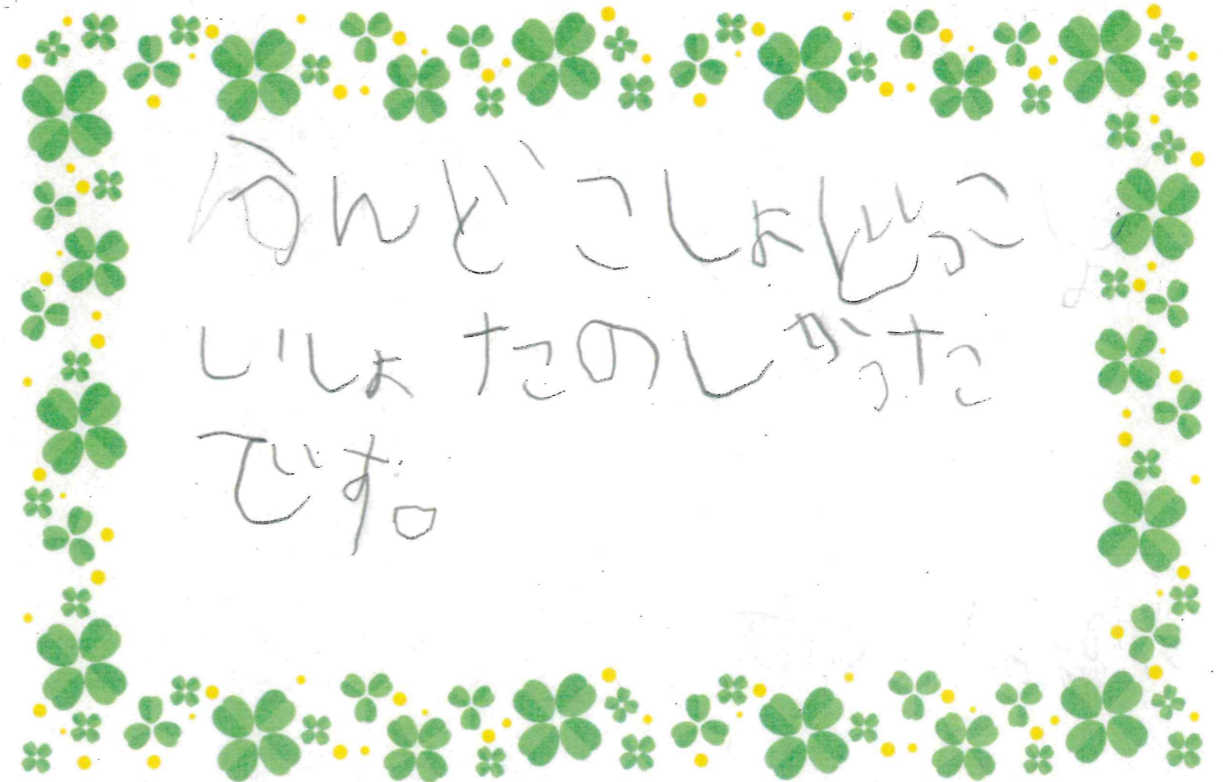 うんどこしょどっこ
いしょ たのしかった
です。